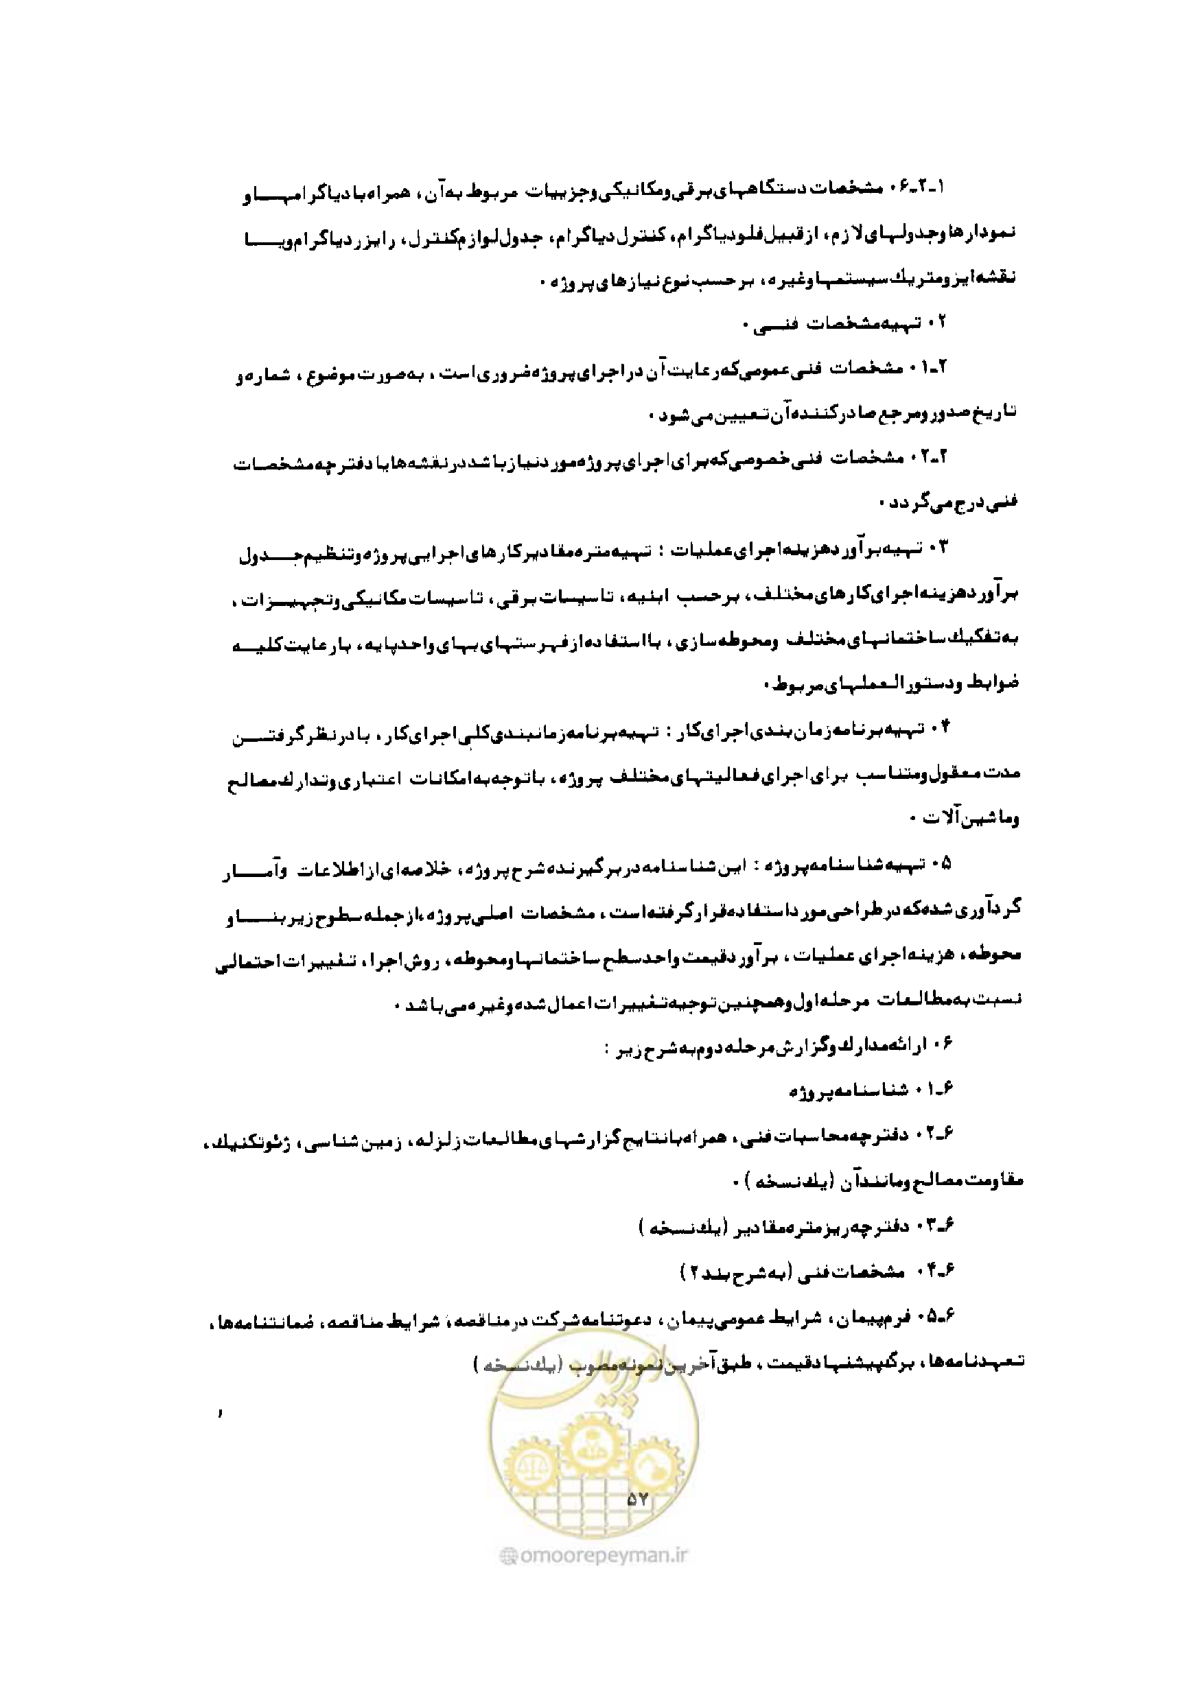 ۱-۲-۶۰ مشخصات دستگاههای برقی و مکانیکی و جزییات مربوط به آن، همراه با دیاگرامها و
نمودارها و جدولهای لازم، از قبیل فلودیاگرام، کنترل دیاگرام، جدول لوازم کنترل، رایزر دیاگرام و یا
نقشه ایزومتریک سیستمها و غیره، برحسب نوع نیازهای پروژه ۰
۲۰ تهیه مشخصات فنی ۰
۲-۱۰ مشخصات فنی عمومی که رعایت آن در اجرای پروژه ضروری است، به صورت موضوع، شماره و
تاریخ صدور و مرجع صادر کننده آن تعیین می شود ۰
۲-۲۰ مشخصات فنی خصوصی که برای اجرای پروژه مورد نیاز باشد در نقشه ها یا دفترچه مشخصات
فنی درج می گردد ۰
۳۰ تهیه برآورد هزینه اجرای عملیات : تهیه متره مقادیر کارهای اجرایی پروژه و تنظیم جدول
برآورد هزینه اجرای کارهای مختلف، برحسب ابنیه، تاسیسات برقی، تاسیسات مکانیکی و تجهیزات،
به تفکیک ساختمانهای مختلف و محوطه سازی، با استفاده از فهرستهای بهای واحد پایه، با رعایت کلیه
ضوابط و دستورالعملهای مربوط ۰
۴۰ تهیه برنامه زمان بندی اجرای کار : تهیه برنامه زمانبندی کلی اجرای کار، با در نظر گرفتن
مدت معقول و متناسب برای اجرای فعالیتهای مختلف پروژه، با توجه به امکانات اعتباری و تدارک مصالح
و ماشین آلات ۰
۵۰ تهیه شناسنامه پروژه : این شناسنامه در برگیرنده شرح پروژه، خلاصه ای از اطلاعات و آمار
گردآوری شده که در طراحی مورد استفاده قرار گرفته است، مشخصات اصلی پروژه، از جمله سطوح زیربنا و
محوطه، هزینه اجرای عملیات، برآورد قیمت واحد سطح ساختمانها و محوطه، روش اجرا، تغییرات احتمالی
نسبت به مطالعات مرحله اول و همچنین توجیه تغییرات اعمال شده و غیره می باشد ۰
۶۰ ارائه مدارک و گزارش مرحله دوم به شرح زیر :
۶-۱۰ شناسنامه پروژه
۶-۲۰ دفترچه محاسبات فنی، همراه با نتایج گزارشهای مطالعات زلزله، زمین شناسی، ژئوتکنیک،
مقاومت مصالح و مانند آن (یک نسخه) ۰
۶-۳۰ دفترچه ریز متره مقادیر (یک نسخه)
۶-۴۰ مشخصات فنی (به شرح بند ۲)
۶-۵۰ فرم پیمان، شرایط عمومی پیمان، دعوتنامه شرکت در مناقصه، شرایط مناقصه، ضمانتنامه ها،
تعهدنامه ها، برگ پیشنهاد قیمت، طبق آخرین نمونه مصوب (یک نسخه)
امور پیمان
۵۷
@omoorepeyman.ir